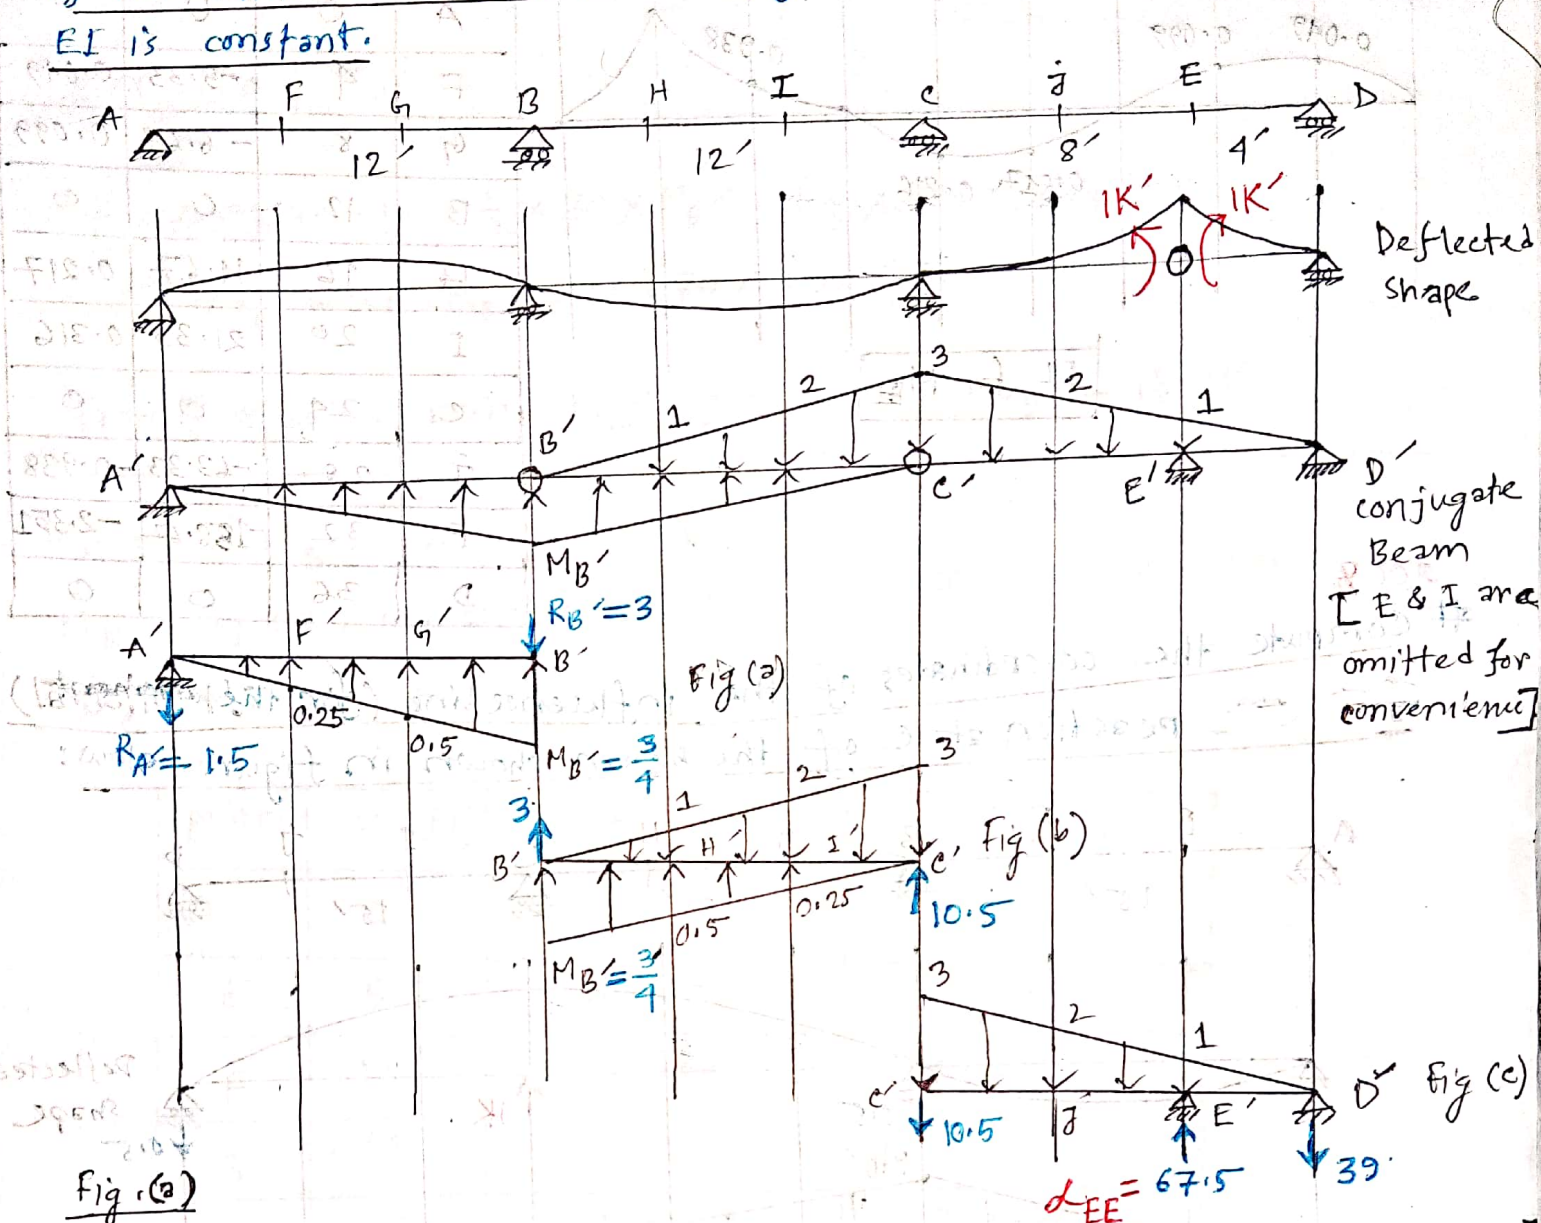 EI is constant.
A F G B H I C j E D
12' 12' 8' 4'
1K' 1K'
Deflected
shape
3
2 2
1 1
B'
A' C' E' D'
conjugate
Beam
[E & I are
omitted for
convenience]
MB'
RB' = 3
A' F' G' B'
Fig (a)
0.25 0.5
RA' = 1.5
MB' = 3/4
3
1 2 3
B' H' I' C' Fig (b)
0.5 0.25
10.5
MB' = 3/4
3
2
1
C' J' E' D' Fig (c)
10.5
αEE = 67.5
39
Fig. (a)